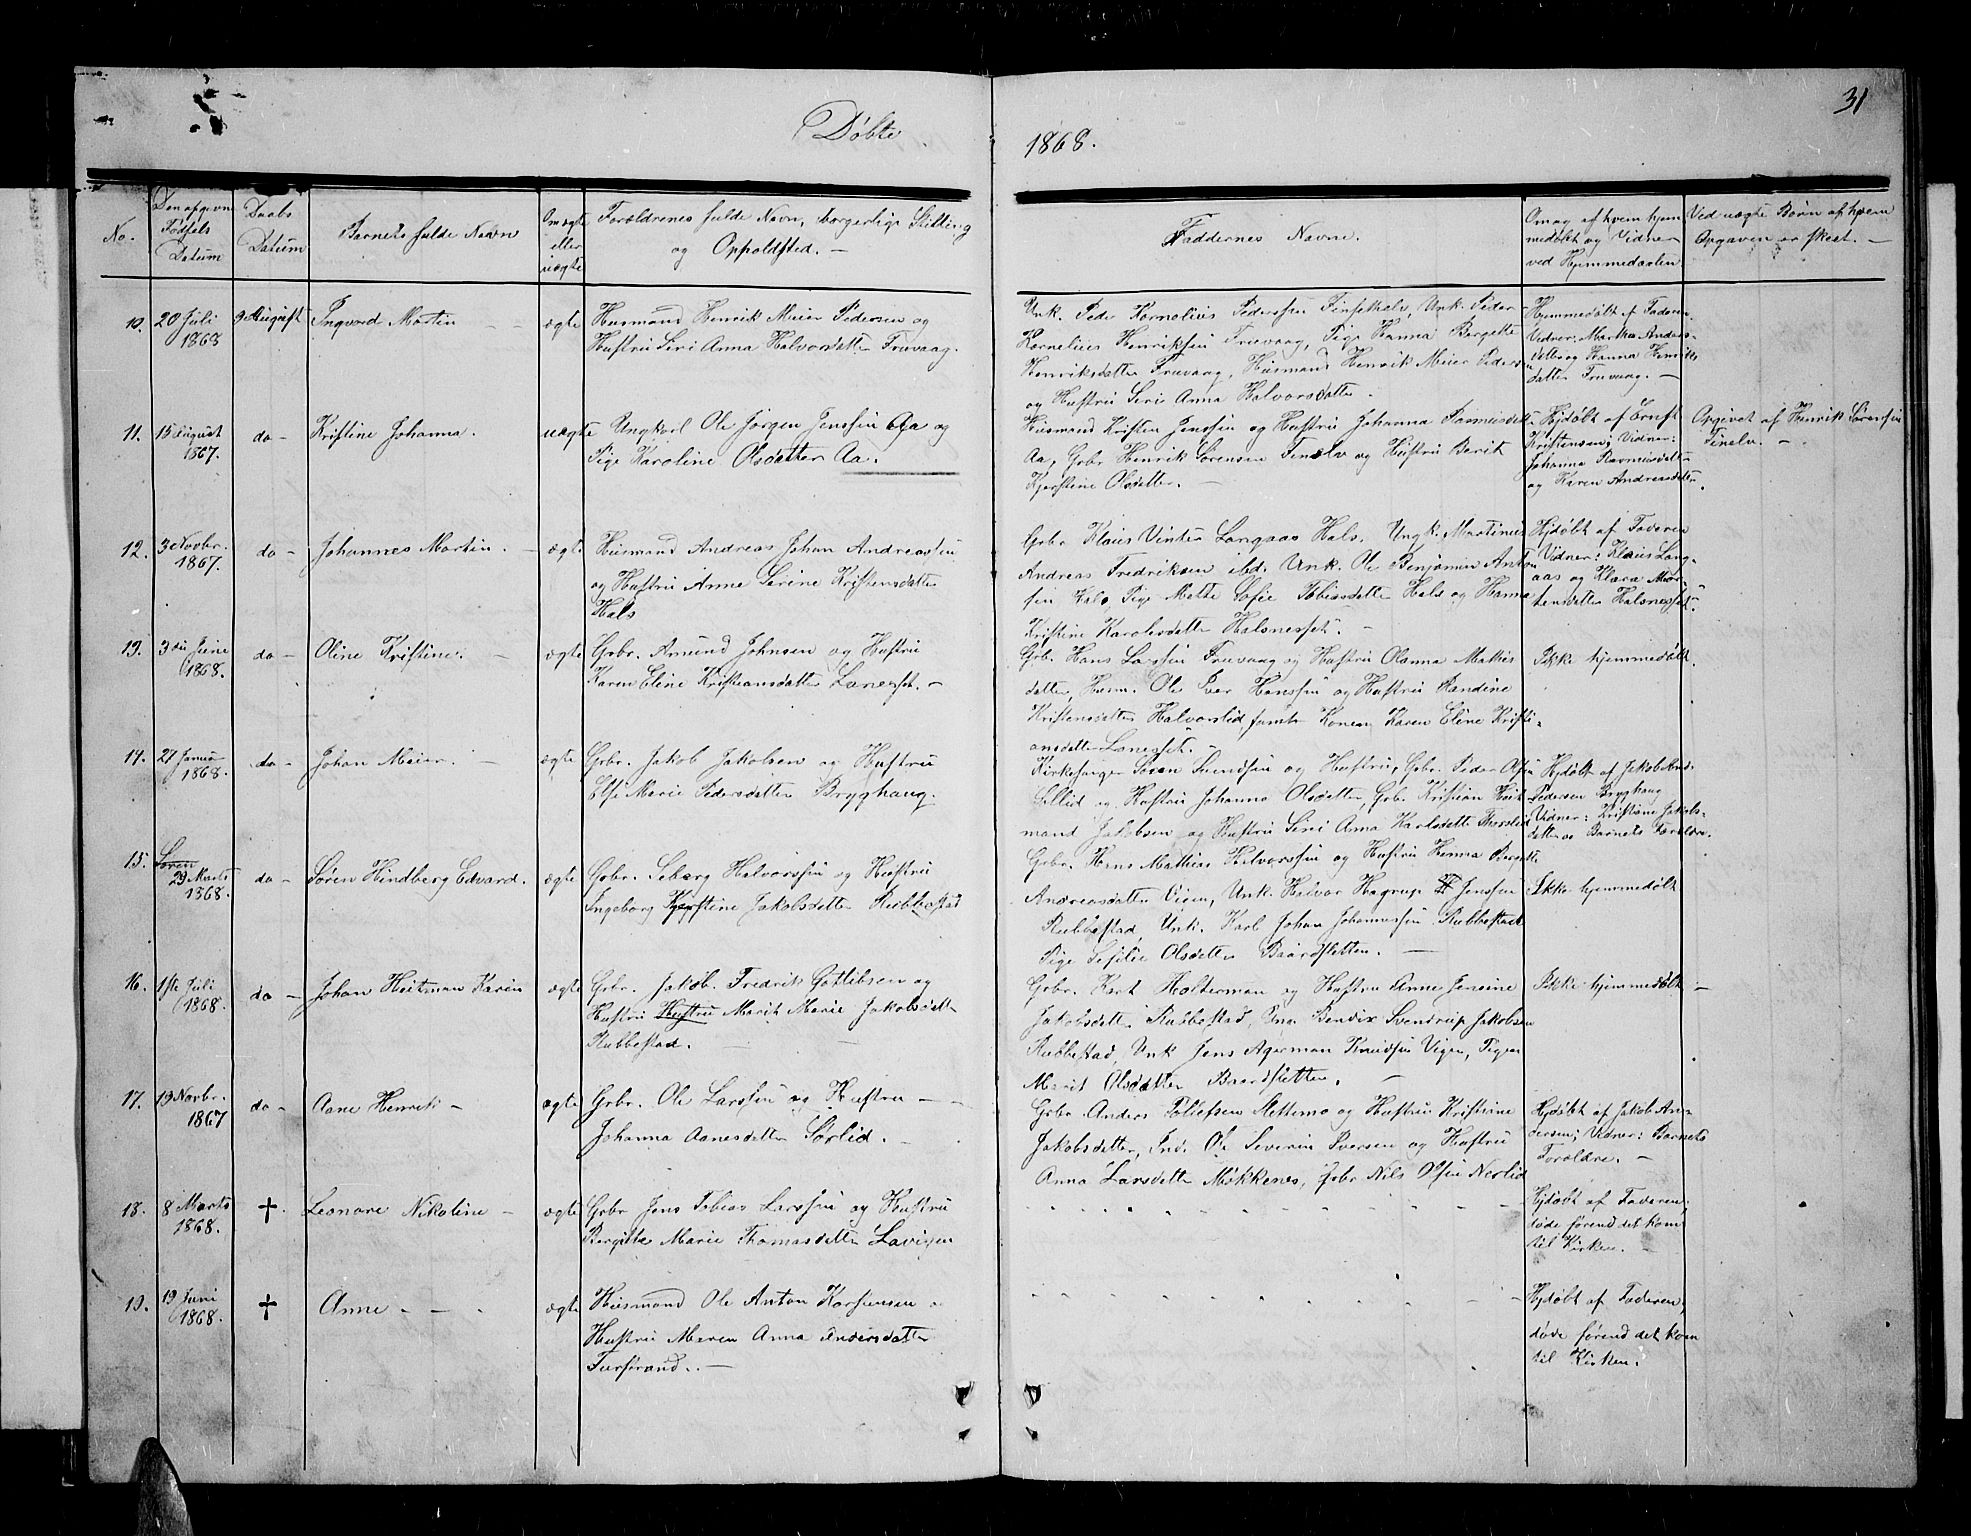 Døbte
1868.
31
No.
Den opgivne
Fødsels
Datum
Daabs
Datum
Barnets fulde Navn
Om ægte
eller
uægte
Forældrenes fulde Navn, borgerlige Stilling
og Opholdsted. -
Faddernes Navne.
Om og af hvem hjem
medøbt og Vidner
ved Hjemmedaaben
Ved uægte Børn af hvem
Opgaven er skeet. -
10. 20 Juli
1868
9 August
Ingvard Martin - -
ægte
Husmand Henrik Meier Pedersen og
Hustru Siri Anna Halvorsdatter Truvaag.
Unk. Peder Kornelius Pederssen Finsælv, Unk. Peder
Kornelius Henriksen Truvaag, Pige Hanna Bergitte
Henriksdatter Truvaag, Husmand Henrik Meier Pedersen
og Hustru Siri Anna Halvorsdatter.
Hjemmedøbt af Faderen.
Vidner: Martha Anders-
datter og Hanna Henriks
datter Truvaag. -
11. 15 August
1867.
do -
Kristine Johanna.
uægte
Ungkarl Ole Jørgen Jenssen Aa og
Pige Karoline Olsdatter Aa.
Husmand Kristen Jenssen og Hustru Johanna Rasmusdatter
Aa, Grbr Henrik Sørensen Finelv og Hustru Berit
Kjerstine Olsdatter. -
Hjdøbt af Ernst
Kristensen; Vidner:
Johanna Rasmusdatter
og Karen Andreasdatter.
Opgivet af Henrik Sørensen
Finelv. -
12. 3 Novbr.
1867.
do -
Johannes Martin. -
ægte
Husmand Andreas Johan Andreassen
og Hustru Anne Serine Kristensdatter
Hals
Grbr Klaus Vinter Langaas Hals, Ungk. Martinus
Andreas Fredriksen ibd. Unk. Ole Benjamin Anton
sen Hals, Pige Mette Sofie Tobiasdatter Hals og Hanna
Kristine Karolusdatter Halsnesset. -
Hjdøbt af Faderen
Vidner: Klaus Lang-
aas og Klara Mor-
tensdatter Halsnesset.
13. 3die June
1868.
do -
Oline Kristine. -
ægte
Grbr. Amund Johnsen og Hustru
Karen Eline Kristiansdatter Lanesset. -
Grb. Hans Larssen Truvaag og Hustru Olanna Mathis
datter, Husm. Ole Iver Hanssen og Hustru Randine
Kristensdatter Halvorslid samt Konen Karen Eline Kristi-
ansdatter Lanesset. -
Ikke hjemmedøbt.
14. 27 Januar
1868.
do -
Johan Meier. -
ægte
Grbr. Jakob Jakobsen og Hustru
Else Marie Pedersdatter Bryghaug.
Kirkesanger Søren Svendsen og Hustru, Grbr. Peder Olsen
Lillid og Hustru Johanna Olsdatter, Grb. Kristian Heit
mand Jakobsen og Hustru Siri Anna Karlsdatter
Hjdøbt af Jakob And.
Pedersen Bryghaug
Vidner: Kristine Jakobs-
datter og Barnets Forældre.
15. Søren
29 Marts
1868.
do -
Søren Hindberg Edvard.
ægte
Grbr. Seberg Halvorssen og Hustru
Ingeborg Kjerstine Jakobsdatter Rubbestad
Grbr. Hans Mathias Halvorssen og Hustru Hanna Bergitte
Andreasdatter Vigen, Unk. Halvor Hagrup Jenssen
Rubbestad, Unk. Karl Johan Johannessen Rubbestad
Pige Sefilie Olsdatter Baardsletten. -
Ikke hjemmedøbt
16. 1ste Juli
1868.
do -
Johan Heitman Karin
ægte
Grbr. Jakob Fredrik Gotlibsen og
Hustru Hustru Marit Marie Jakobsdatter
Rubbestad. -
Grbr. Kort Holterman og Hustru Anne Jensine
Jakobsdatter Rubbestad, Bendix Svendrup Jakobsen
Rubbestad, Unk Jens Agerman Knudsen Vigen, Pigen
Marit Olsdatter Baardsletten. -
Ikke hjemmedøbt -
17. 19 Novbr.
1867
do -
Aane Henrik -
ægte
Grbr. Ole Larssen og Hustru -
Johanna Aanesdatter Sørlid. -
Grbr Anders Tollefsen Mettemo og Hustru Kristine
Jakobsdatter, Ind. Ole Severin Iversen og Hustru
Anna Larsdatter Møkkenes, Grbr Nils Olsen Nerlid
Hjdøbt af Jakob An-
dersen; Vidner: Barnets
Forældre. -
18. 8 Marts
1868.
†
Leonare Nikoline -
ægte
Grbr Jens Tobias Larssen og Hustru
Bergitte Marie Thomasdatter Lavigen
Hjdøbt af Faderen;
døde førend det kom
til Kirken. -
19. 19 Juni
1868.
†
Anne - - -
ægte
Husmand Ole Anton Korsensen og
Hustru Maren Anna Andersdatter
Furstrand. -
Hjdøbt af Faderen;
døde førend det kom
til Kirken.